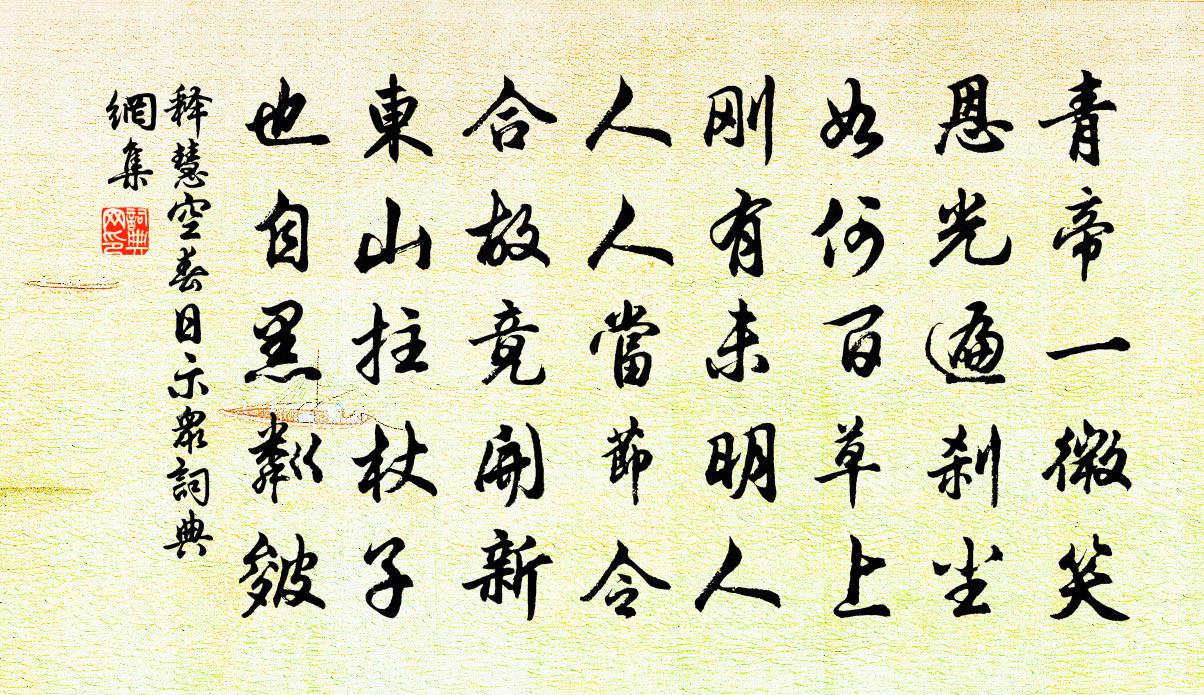 青帝一微笑
恩光遍刹尘
如何百草上
刚有未明人
人人當節令
合故竟開新
東山拄杖子
也自黑粼皴
释慧空春日示衆詞典
網集
詞典
网印